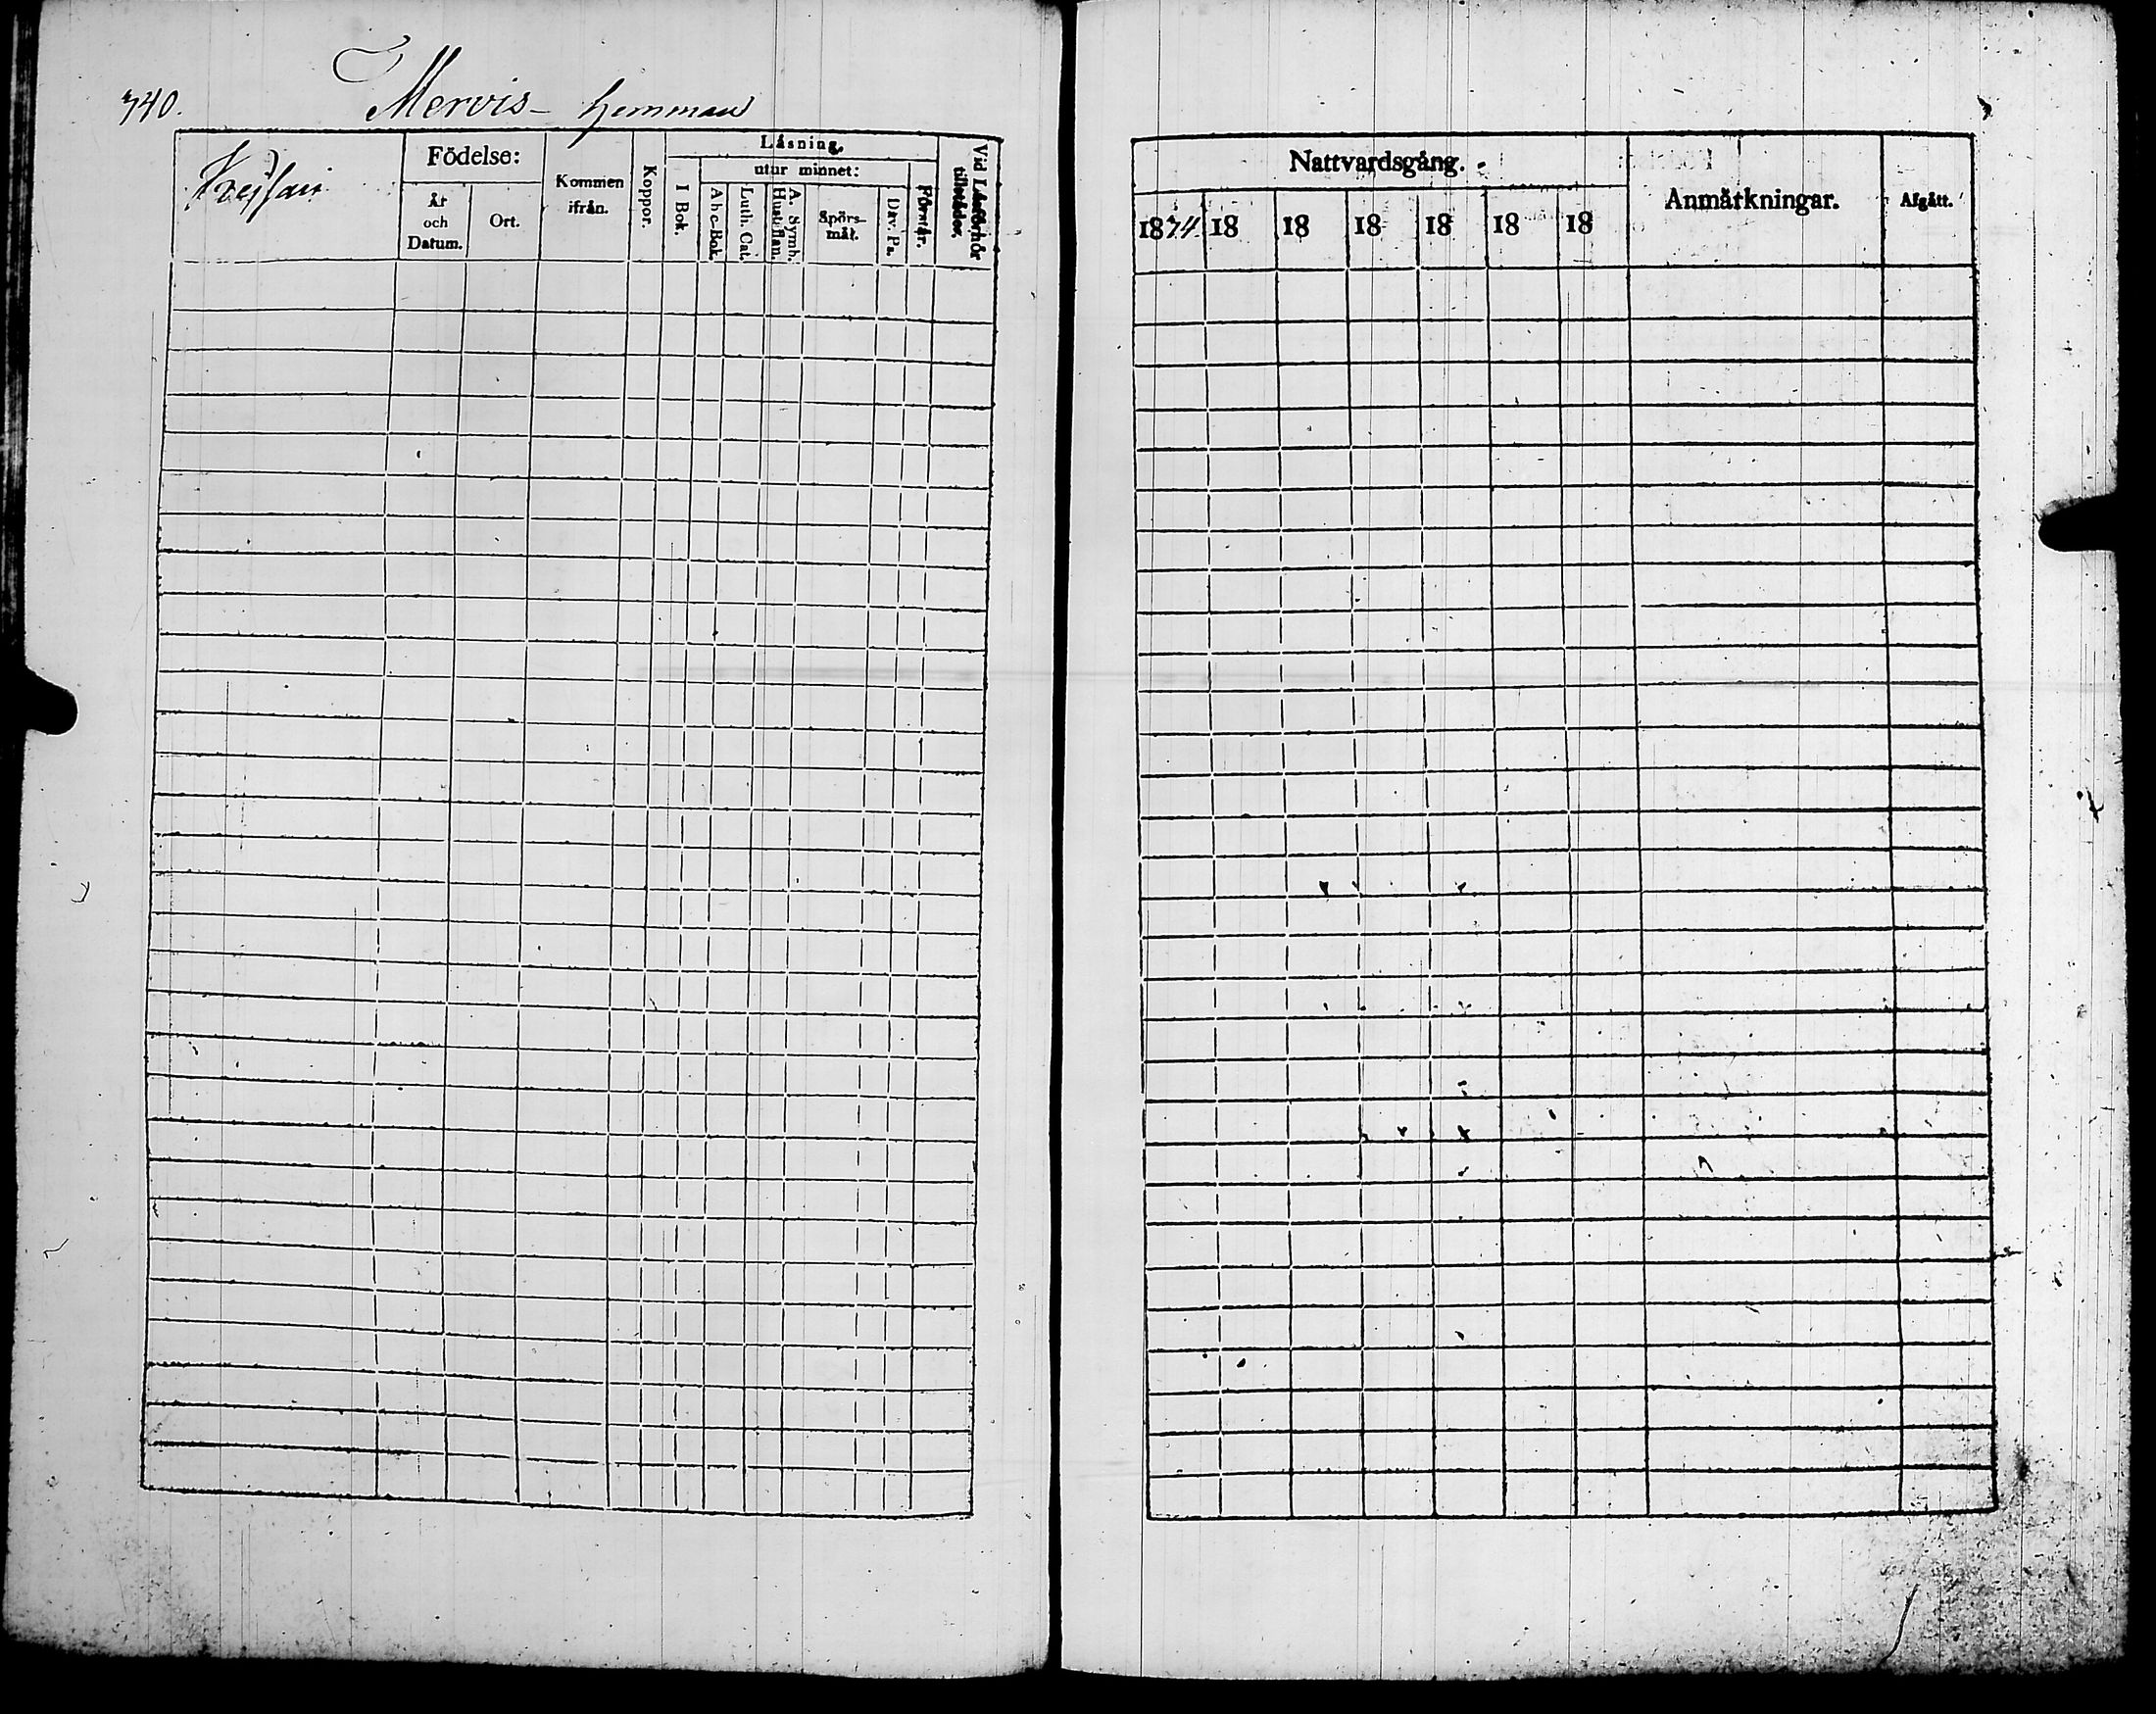 740. Mervis- hemman
Födelse:
År
och
Datum.
Ort.
Kommen
ifrån.
Koppor.
Läsning.
I Bok.
utur minnet:
A b c-Bok.
Luth. Cat.
A. Symb.
Hust-flan.
Spörs-
mål.
Dav. Ps.
Förstår.
Vid Läsförhör
tillstädes.
Nattvardsgång.
1874. 18 18 18 18 18 18
Anmärkningar.
Afgått.